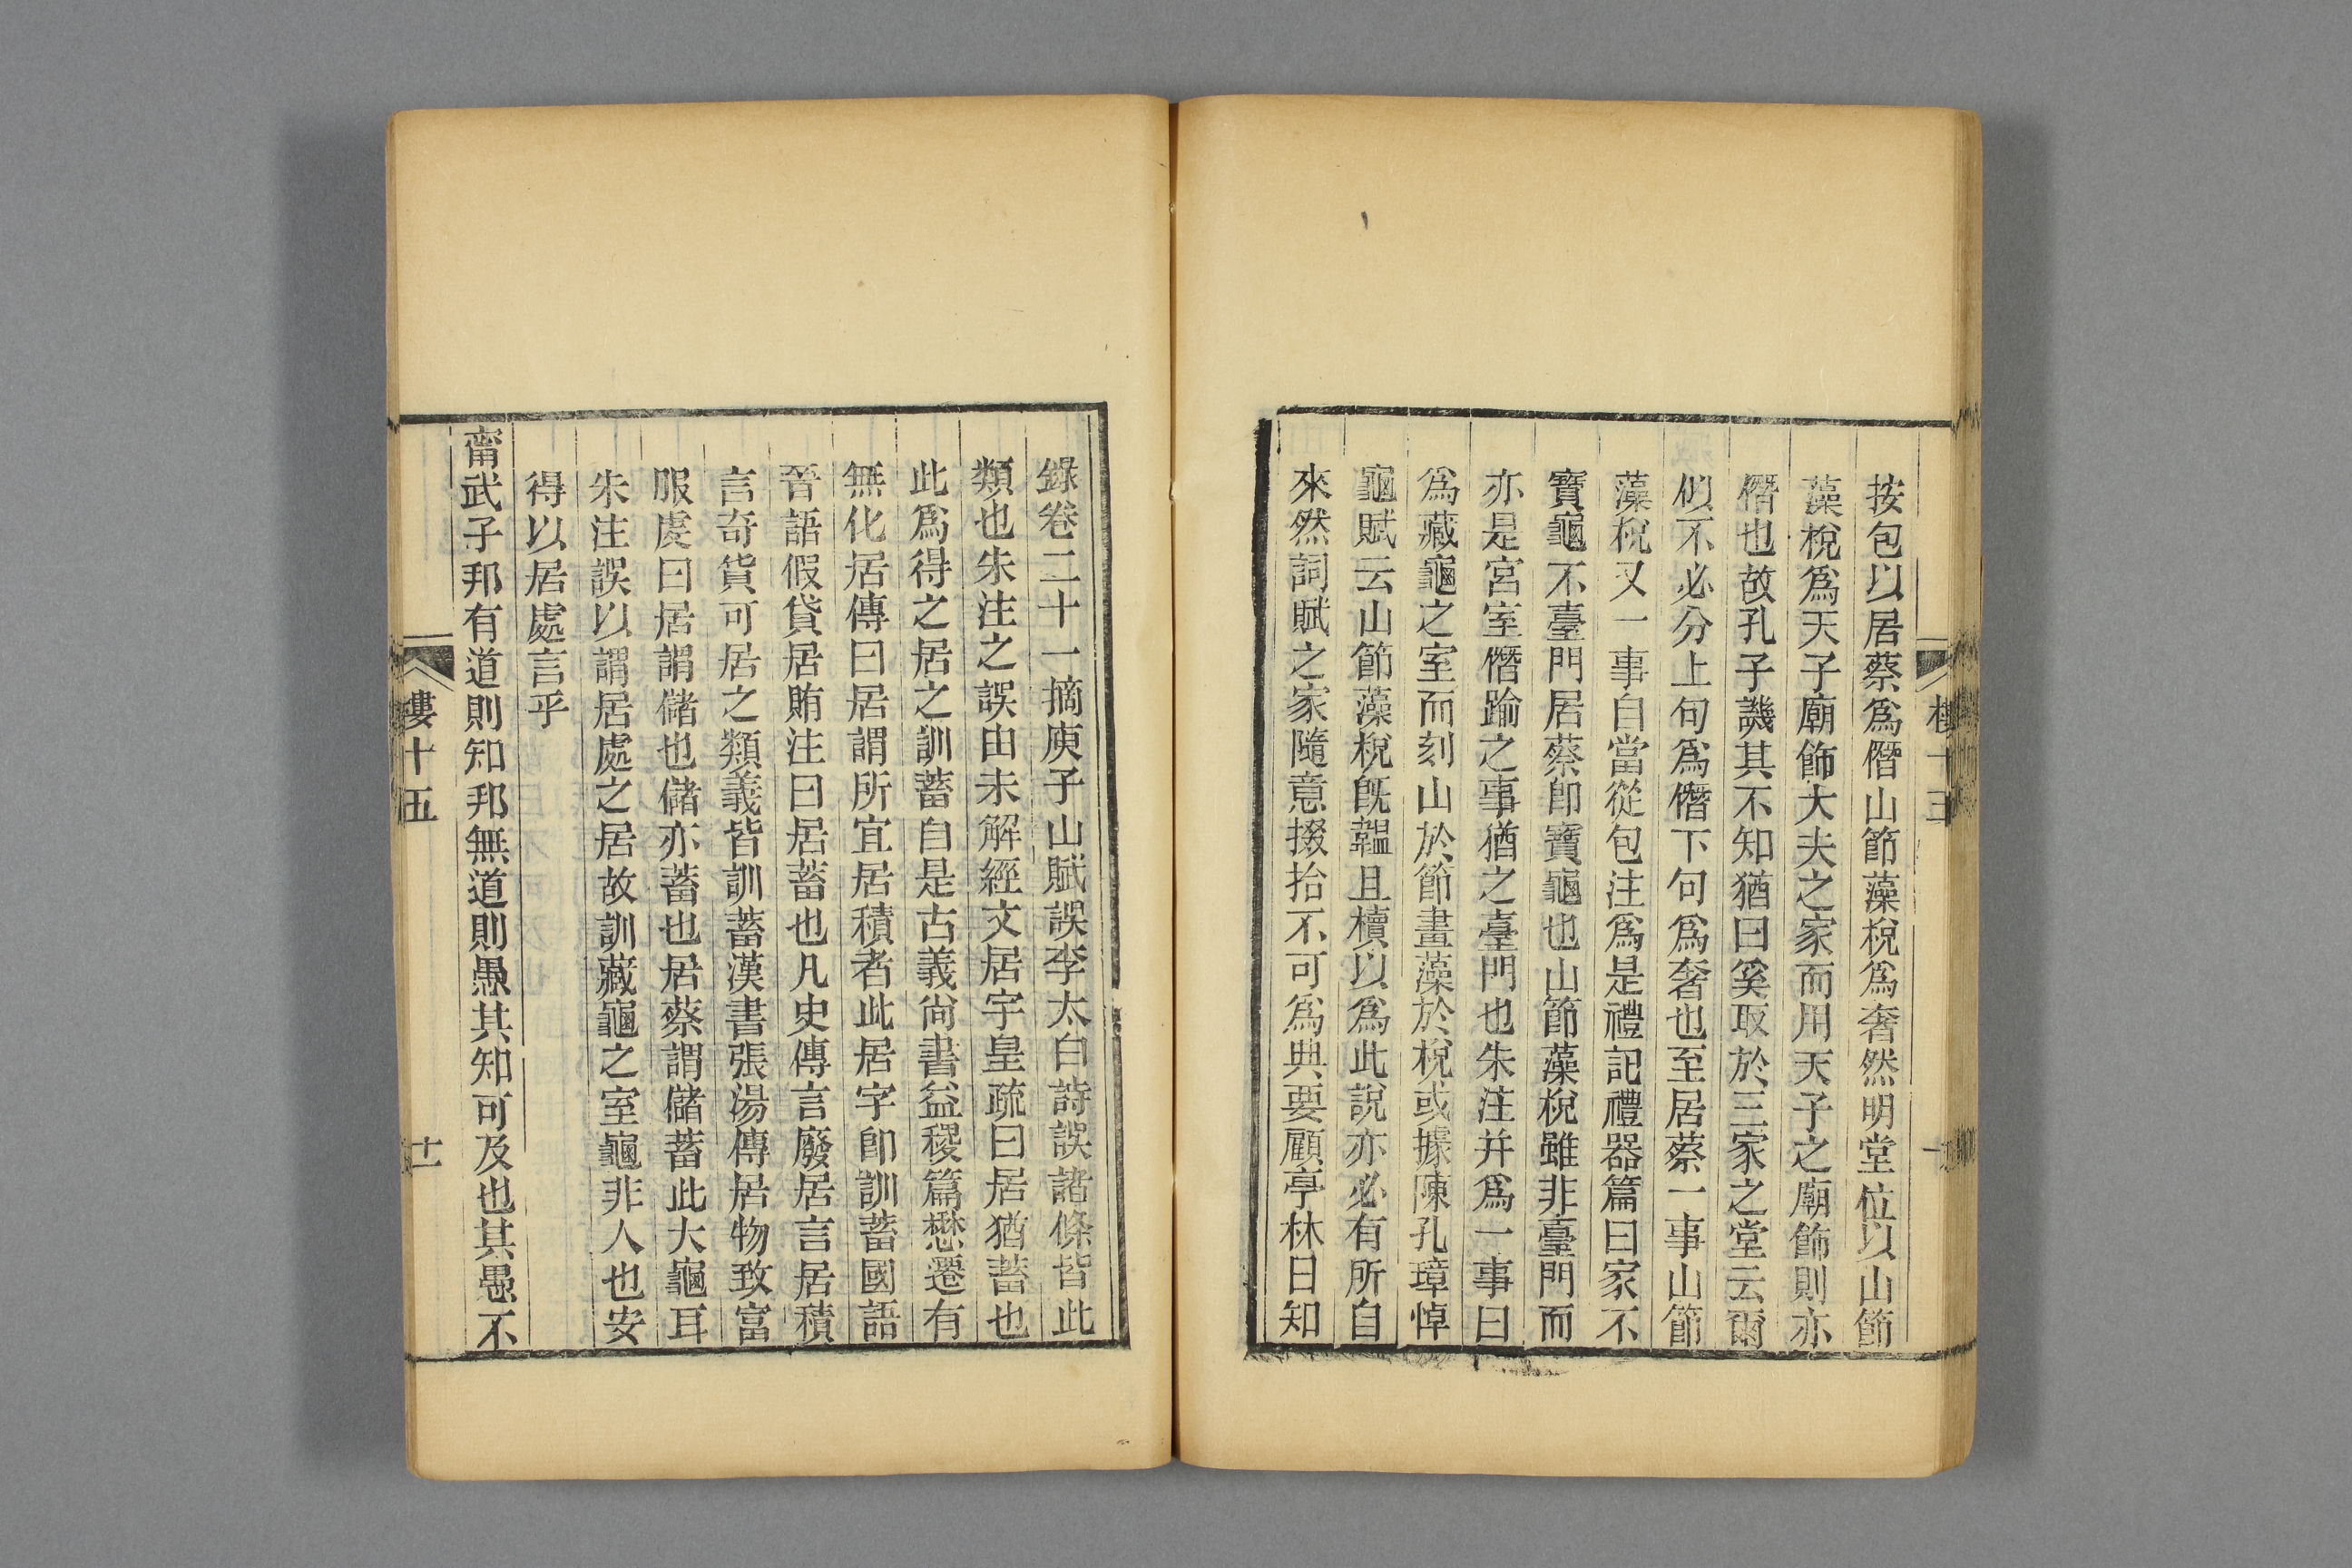 按包以居蔡爲僭山節藻梲爲奢然明堂位以山節
藻梲爲天子廟飾大夫之家而用天子之廟飾則亦
僭也故孔子譏其不知猶曰奚取於三家之堂云爾
似不必分上句爲僭下句爲奢也至居蔡一事山節
藻梲又一事自當從包注爲是禮記禮器篇曰家不
寶龜不臺門居蔡卽寶龜也山節藻梲雖非臺門而
亦是宮室僭踰之事猶之臺門也朱注并爲一事曰
爲藏龜之室而刻山於節畫藻於梲或據陳孔璋悼
龜賦云山節藻梲旣韞且櫝以爲此說亦必有所自
來然詞賦之家隨意掇拾不可爲典要顧亭林日知
錄卷二十一摘庾子山賦誤李太白詩誤諸條皆此
類也朱注之誤由未解經文居字皇疏曰居猶蓄也
此爲得之居之訓蓄自是古義尙書益稷篇懋遷有
無化居傳曰居謂所宜居積者此居字卽訓蓄國語
晉語假貸居賄注曰居蓄也凡史傳言廢居言居積
言奇貨可居之類義皆訓蓄漢書張湯傳居物致富
服虔曰居謂儲也儲亦蓄也居蔡謂儲蓄此大龜耳
朱注誤以謂居處之居故訓藏龜之室龜非人也安
得以居處言乎
甯武子邦有道則知邦無道則愚其知可及也其愚不
樓十五
十一